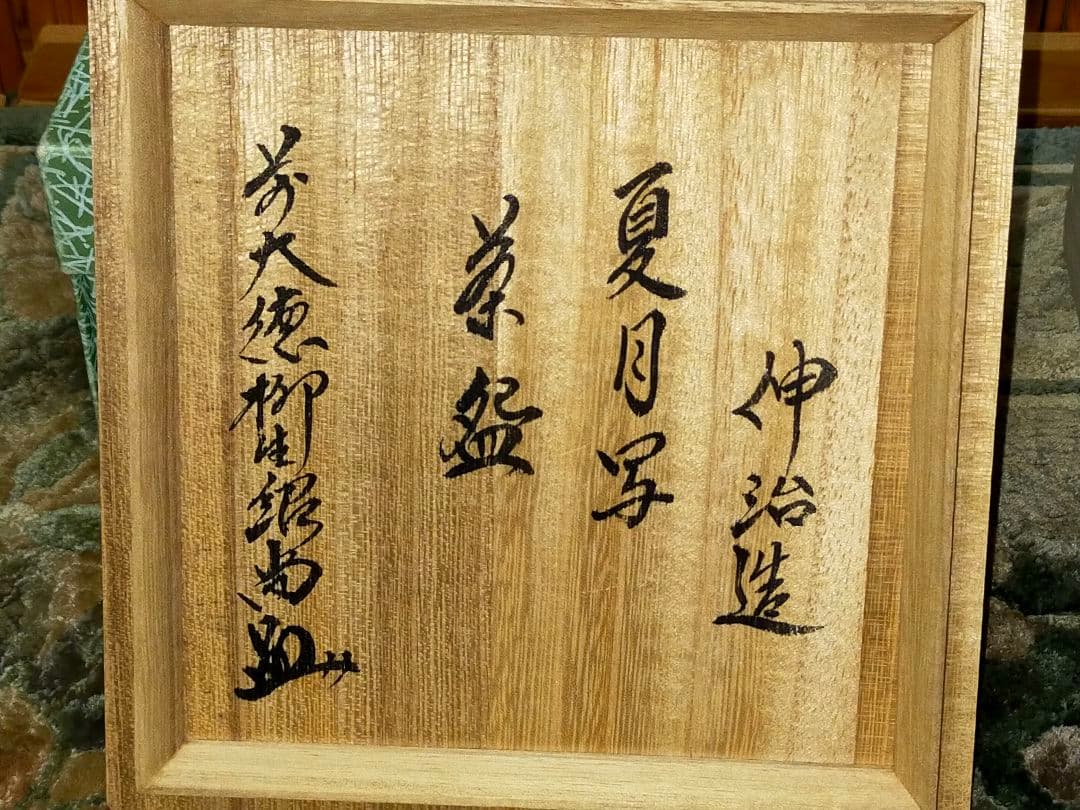 伸治造
夏月写
茶盌
前大徳柳生紹尚